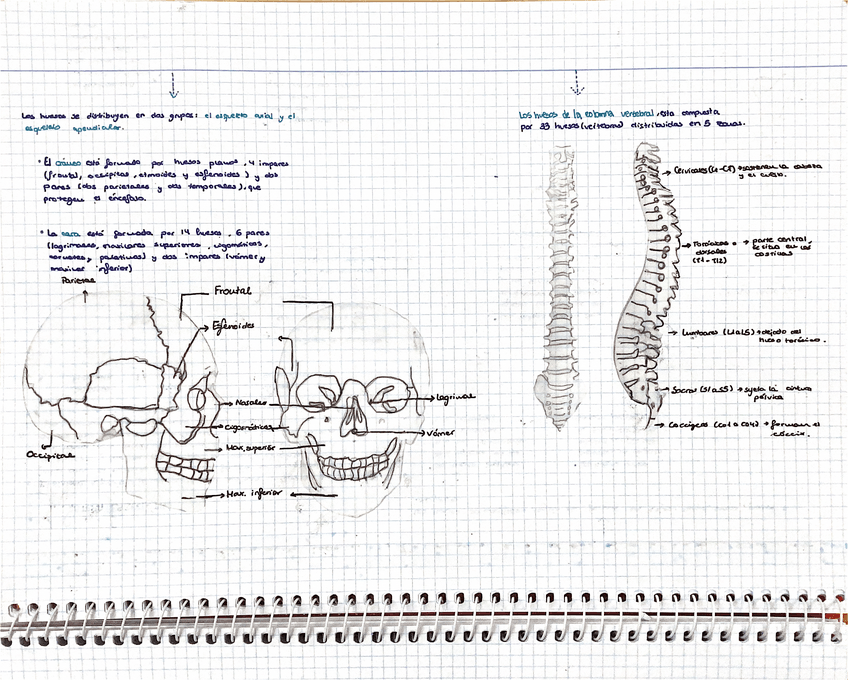 Los huesos se distribuyen en dos grupos: el esqueleto axial y el
esqueleto apendicular.
• El cráneo está formado por huesos planos, 4 impares
(frontal, occipital, etmoides y esfenoides) y dos
pares (dos parietales y dos temporales), que
protegen el encéfalo.
• La cara está formada por 14 huesos, 6 pares
(lagrimales, maxilares superiores, cigomáticos,
cornetes, palatinos) y dos impares (vómer y
maxilar inferior)
Parietal
Frontal
Esfenoides
Nasales
Cigomáticos
Max. superior
Max. inferior
Occipital
Lagrimal
Vómer
Los huesos de la columna vertebral, esta compuesta
por 33 huesos (vértebras) distribuidas en 5 zonas.
Cervicales (C1-C7) → sostienen la cabeza
y el cuello.
Torácicas o → parte central,
dorsales
(T1-T12)
costillas
Lumbares (L1 a L5) → dejado del
hueso torácico.
Sacras (S1 a S5) → sujeta la cintura
pélvica
Coccígeas (Co1 a Co4) → forman el
cóccix.